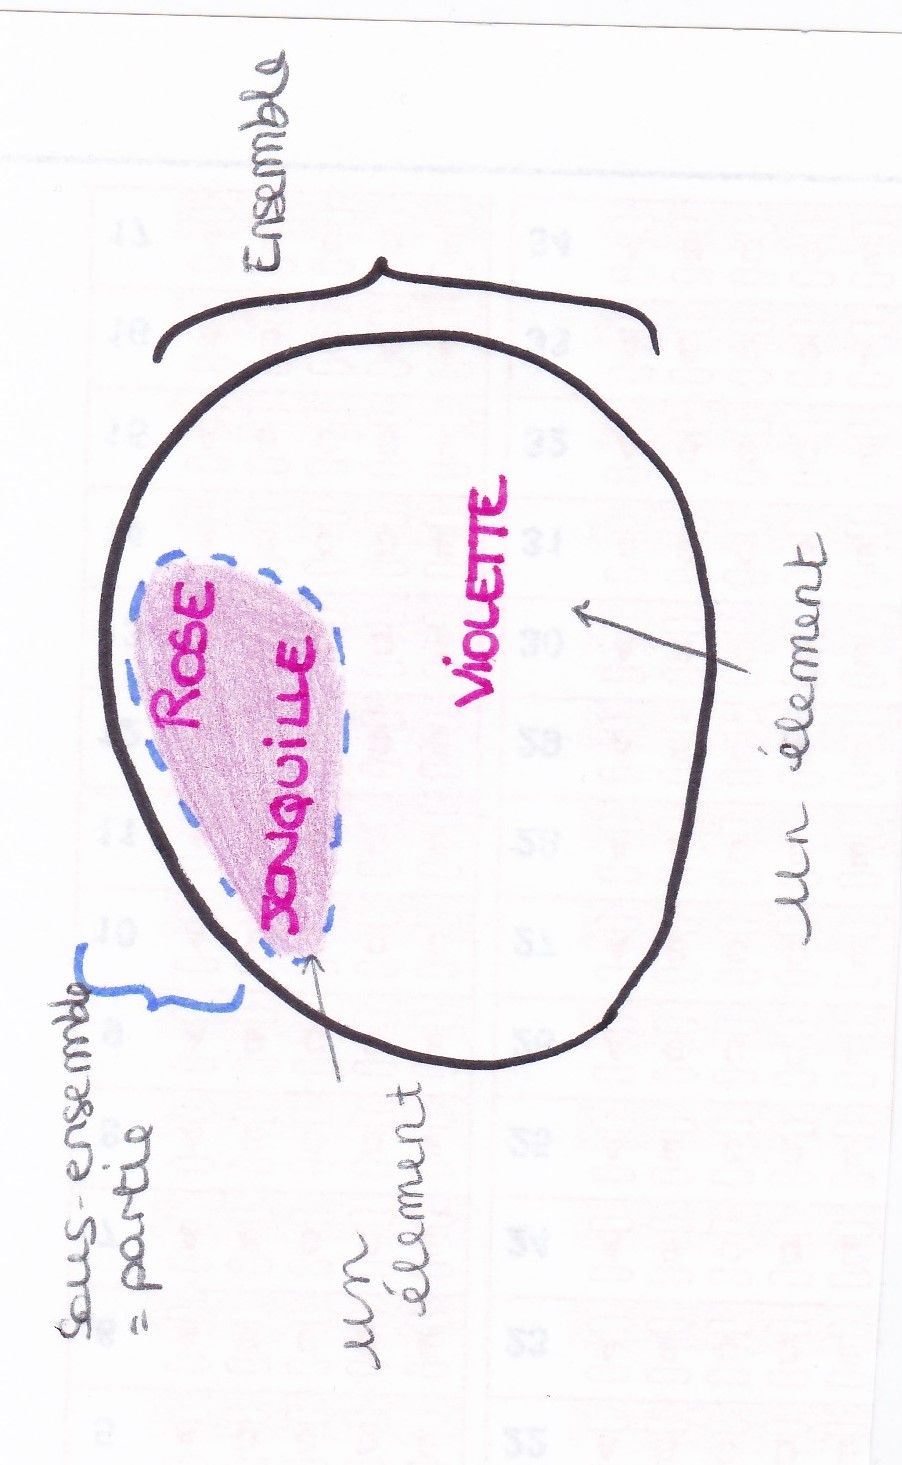 Ensemble
ROSE
JONQUILLE
VIOLETTE
Sous-ensemble
= partie
un
élement
un élement